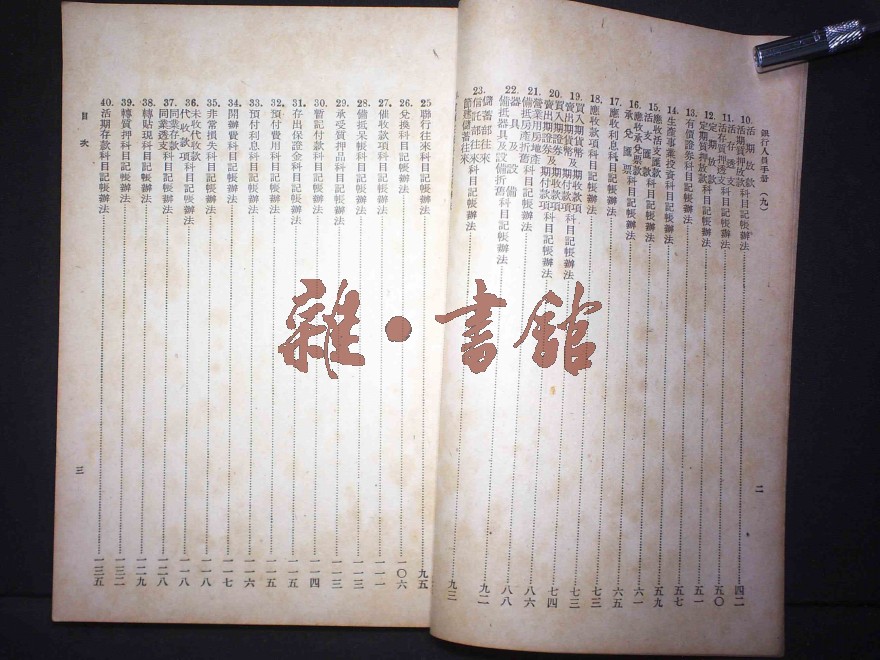 銀行人員手册（九）
10. 活期放款 活期質押放款 科目記帳辦法 四二
11. 活存透支 活存質押透支 科目記帳辦法 五〇
12. 定期放款 定期質押放款 科目記帳辦法 五一
13. 有價證券科目記帳辦法 五七
14. 生產事業投資科目記帳辦法 五九
15. 活支匯款 應收活支匯款 科目記帳辦法
16. 應收承兌票款 承兌匯票 科目記帳辦法 六五
17. 應收利息科目記帳辦法 七三
18. 應收款項科目記帳辦法 七三
19. 買入期貨幣及期收款項 賣出期貨幣及期付款項 科目記帳辦法
20. 買入期證券及期收款項 賣出期證券及期付款項 科目記帳辦法 七四
21. 營業用房地產 備抵房產折舊 科目記帳辦法 八六
22. 器具及設備 備抵器具及設備折舊 科目記帳辦法 八八
23. 儲蓄部往來 信託部往來 節建儲蓄往來 科目記帳辦法 九二
九三
二
25 聯行往來科目記帳辦法 九五
26. 兌換科目記帳辦法 一〇六
27. 催收款項科目記帳辦法 一一一
28. 備抵呆帳科目記帳辦法 一一三
29. 承受質押品科目記帳辦法 一一三
30. 暫記付款科目記帳辦法 一一四
31. 存出保證金科目記帳辦法 一一五
32. 預付費用科目記帳辦法 一一五
33. 預付利息科目記帳辦法 一一六
34. 開辦費科目記帳辦法 一一七
35. 非常損失科目記帳辦法 一一八
36. 未收代收款 代收款項 科目記帳辦法 一一八
37. 同業存款 同業透支 科目記帳辦法 一二八
38. 轉貼現科目記帳辦法 一二九
39. 轉質押科目記帳辦法 一三二
40. 活期存款科目記帳辦法 一三五
目次
三
雜·書館